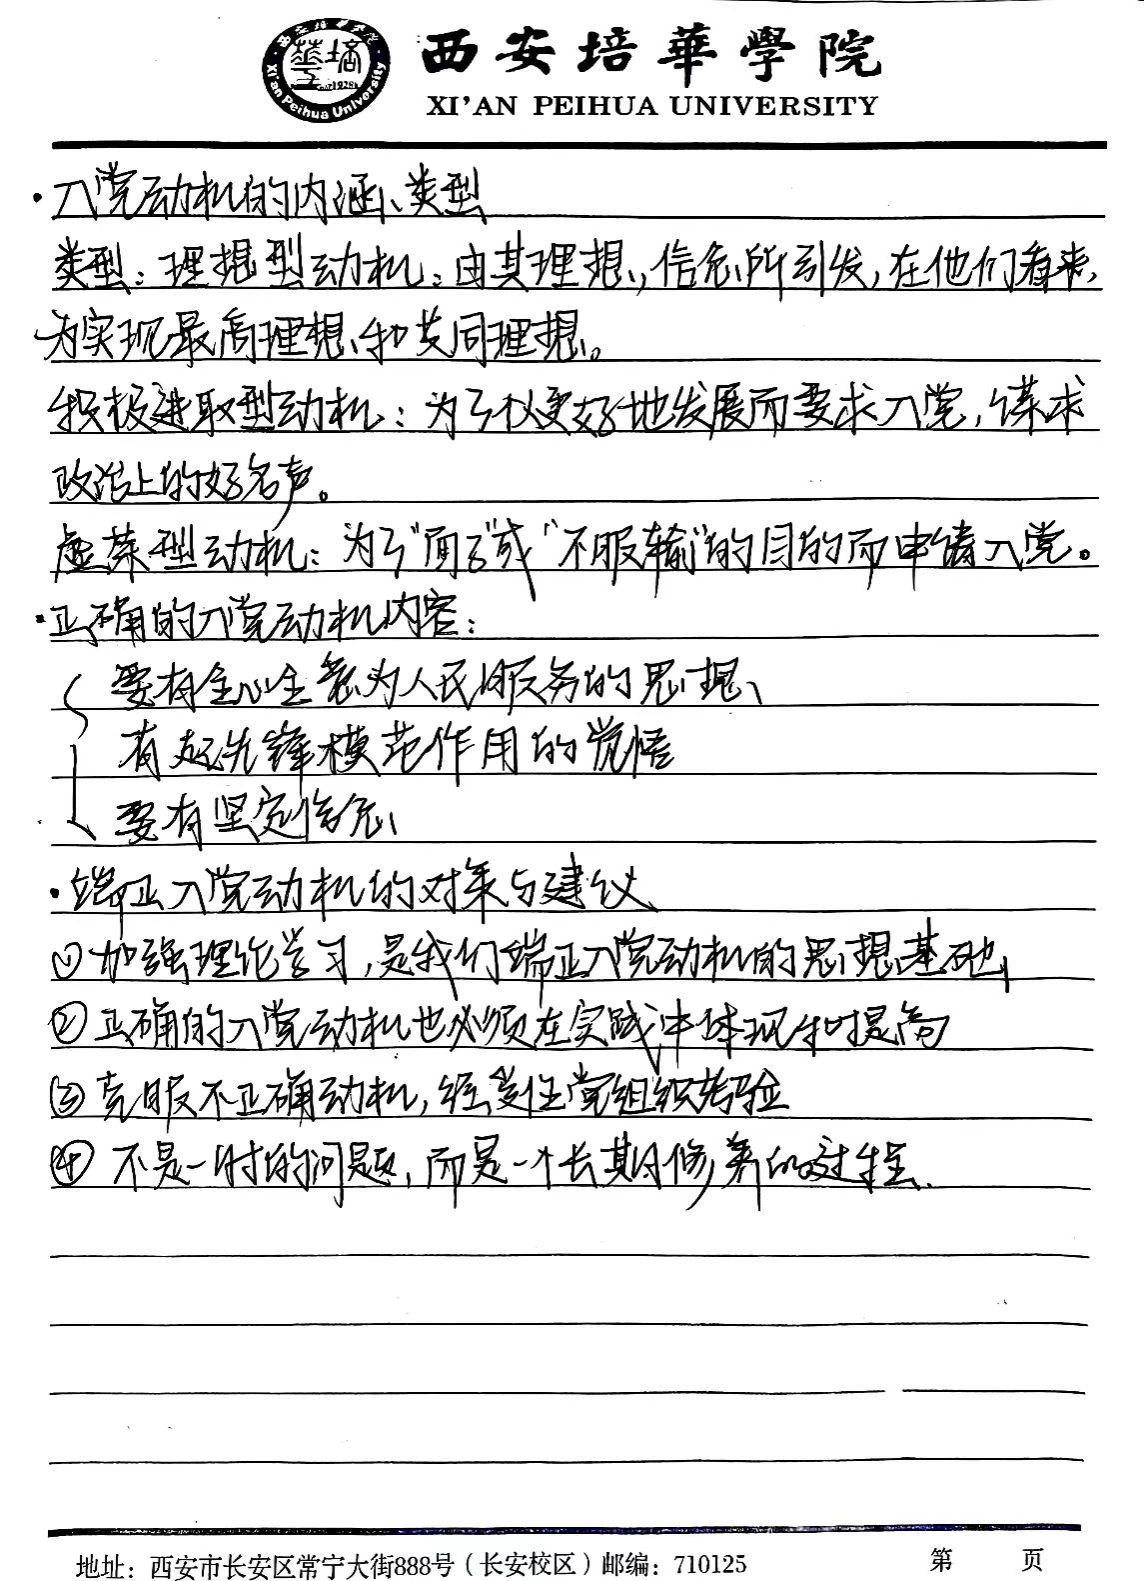 西安培華學院
XI'AN PEIHUA UNIVERSITY
Xi'an Peihua University
1928
·入党动机的内涵、类型
类型：理想型动机：由其理想，信念所引发，在他们看来，
为实现最高理想和共同理想。
积极进取型动机：为了以更好地发展而要求入党，谋求
政治上的好名声。
虚荣型动机：为了"面子"或"不服输"的目的而申请入党。
·正确的入党动机内容：
要有全心全意为人民服务的思想、
有起先锋模范作用的觉悟
要有坚定信念
·端正入党动机的对策与建议
①加强理论学习，是我们端正入党动机的思想基础
②正确的入党动机也必须在实践中体现和提高
③克服不正确动机，经受住党组织考验
④不是一时的问题，而是一个长期修养的过程.
地址：西安市长安区常宁大街888号（长安校区）邮编：710125
第 页